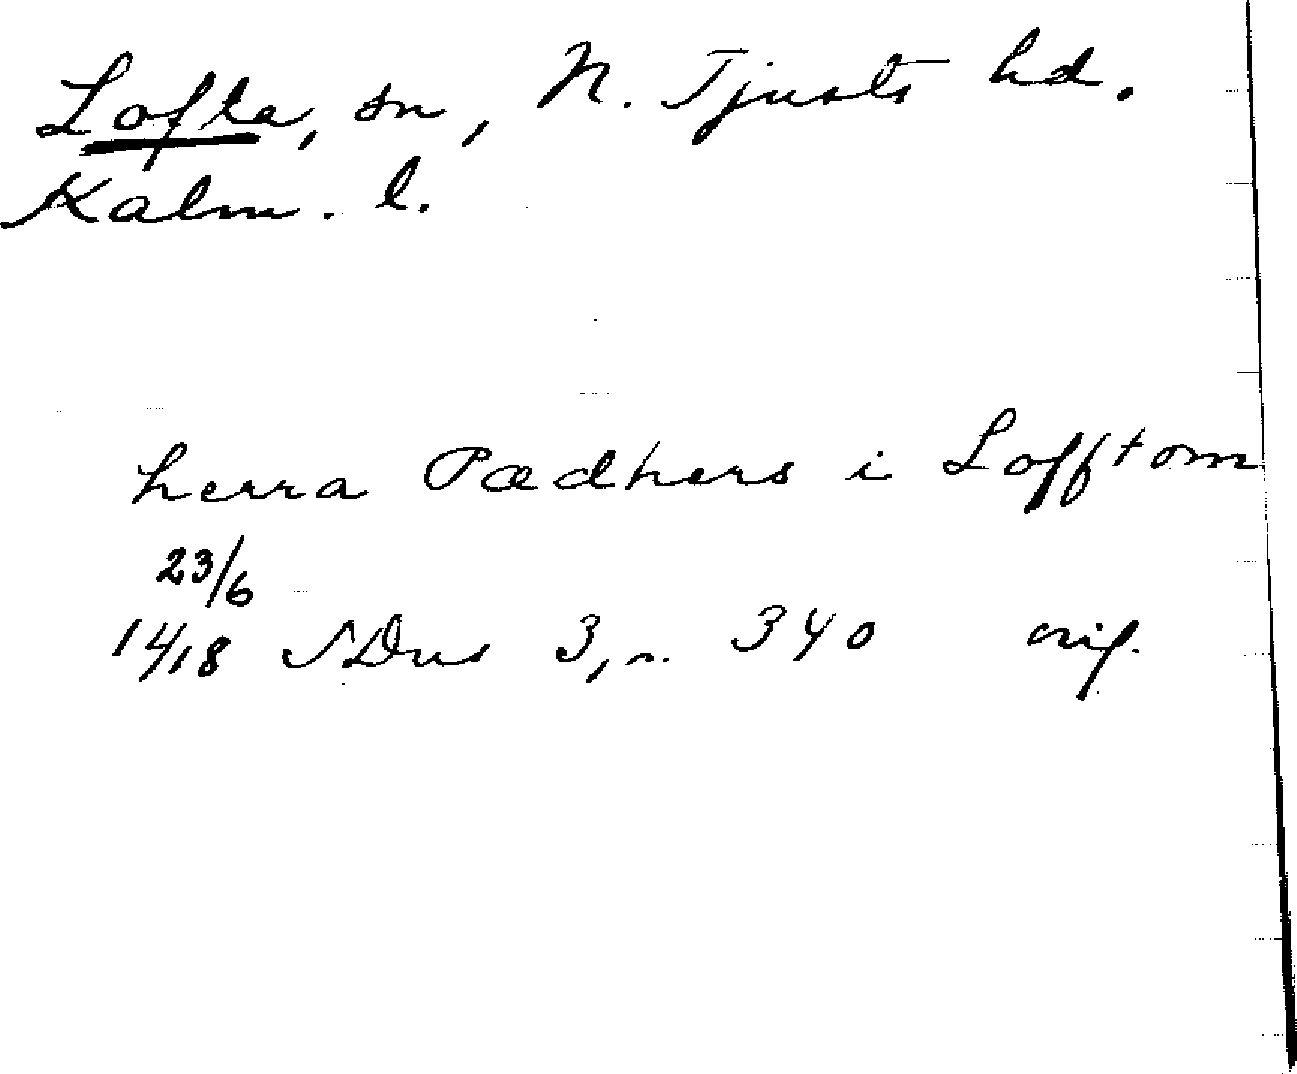 Lofta, sn, N. Tjusts hd.
Kalm. l.
herra Pædhers i Lofftom
23/6
1418 SDns 3, s. 340 orig.